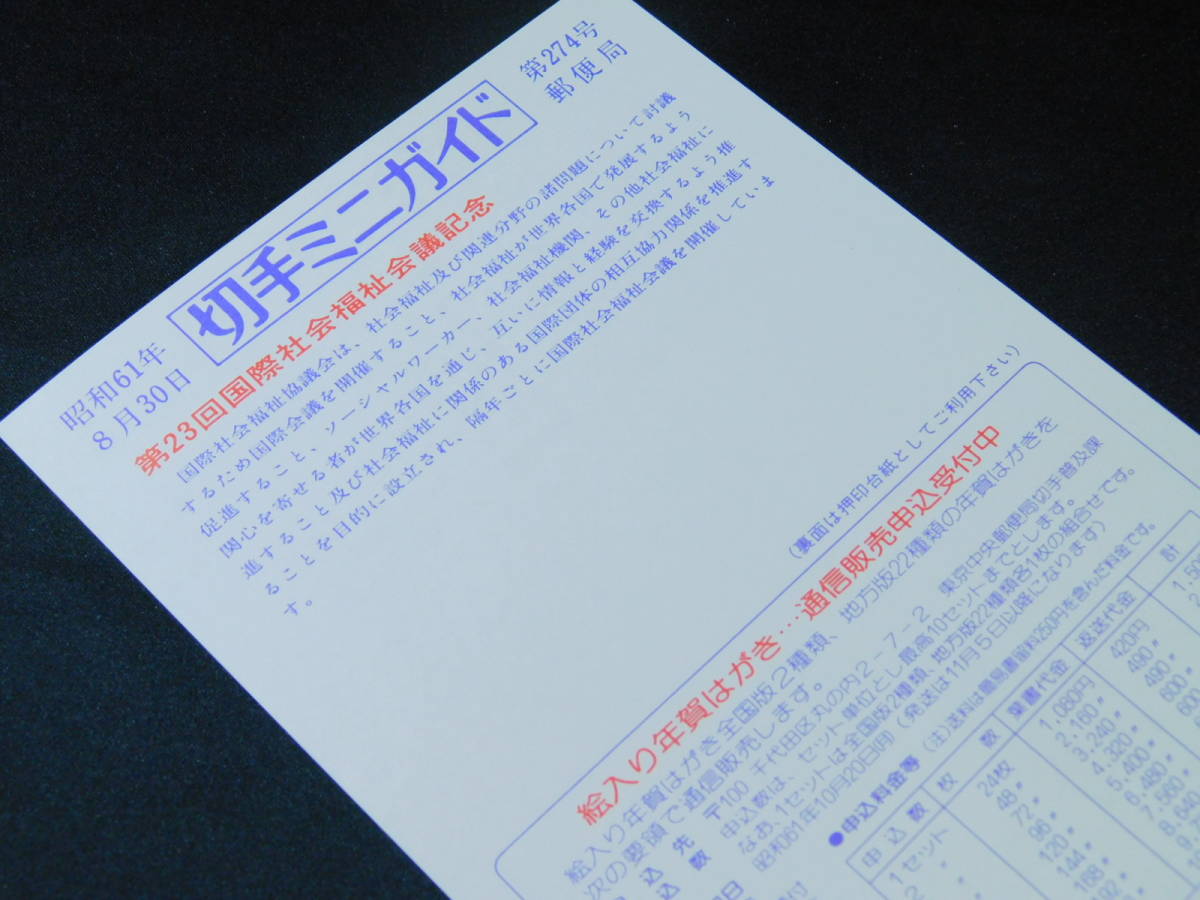 昭和61年
8月30日
切手ミニガイド
第274号
郵便局
第23回国際社会福祉会議記念
国際社会福祉協議会は、社会福祉及び関連分野の諸問題について討議
するため国際会議を開催すること、社会福祉が世界各国で発展するよう
促進すること、ソーシャルワーカー、社会福祉機関、その他社会福祉に
関心を寄せる者が世界各国を通じ、互いに情報と経験を交換するよう推
進すること及び社会福祉に関係のある国際団体の相互協力関係を推進す
ることを目的に設立され、隔年ごとに国際社会福祉会議を開催していま
す。
(裏面は押印台紙としてご利用下さい)
絵入り年賀はがき…通信販売申込受付中
絵入り年賀はがき全国版2種類、地方版22種類の年賀はがきを
次の要領で通信販売します。
込先 〒100 千代田区丸の内2-7-2 東京中央郵便局切手普及課
込数 申込数は、セット単位とし最高10セットまでとします。
なお、1セットは全国版2種類、地方版22種類各1枚の組合せです。
日 昭和61年10月20日(月)(発送は11月5日以降になります)
●申込料金等 (注)送料は簡易書留料250円を含んだ料金です。
申込数 枚数 葉書代金 返送代金 計
1セット 24枚 1,080円 420円 1,50
2〃 48〃 2,160〃 490〃
72〃 3,240〃 490〃
96〃 4,320〃 600〃
120〃 5,400〃
144〃 6,480〃
168〃 7,560〃
192〃 8,640